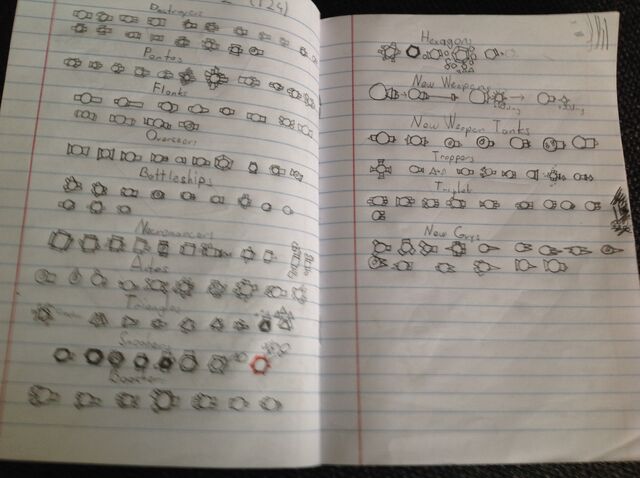 (124)
Destroyers
Pentas
Flanks
Overseers
Battleships
Necromancers
Autos
Triangles
Smashers
Booster
Hexagons
New Weapons
New Weapon Tanks
Trappers
Triplet